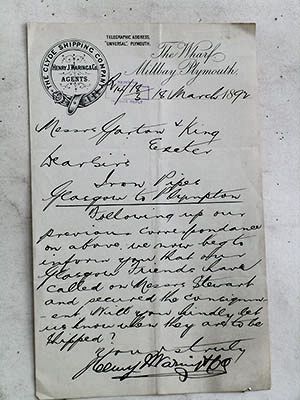 THE CLYDE SHIPPING COMPANY
HENRY J. WARING & CO.
AGENTS.
TELEGRAPHIC ADDRESS,
"UNIVERSAL" PLYMOUTH.
The Wharf
Millbay, Plymouth.
18 March 1892
Messrs Garton & King
Exeter
Dear Sirs
Iron Pipes
Glasgow to Plympton
Following up our
previous correspondence
on above, we now beg to
inform you that our
Glasgow Friends have
called on Messrs Stewart
and secured the consignm-
ent. Will you kindly let
us know when they are to be
shipped?
Yours truly
Henry J Waring & Co